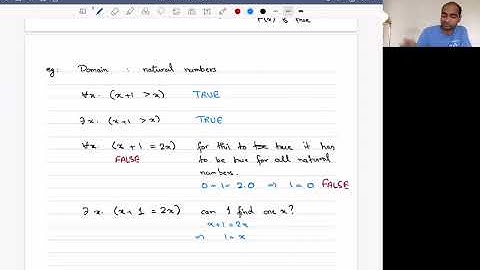 P(x) is true
eg: Domain : natural numbers
∀x. (x+1 > x) TRUE
∃x. (x+1 > x) TRUE
∀x. (x+1 = 2x) for this to be true it has
FALSE to be true for all natural
numbers.
0-1=2.0 ⇒ 1=0 FALSE
∃x. (x+1 = 2x) can I find one x?
x+1=2x
⇒ 1=x